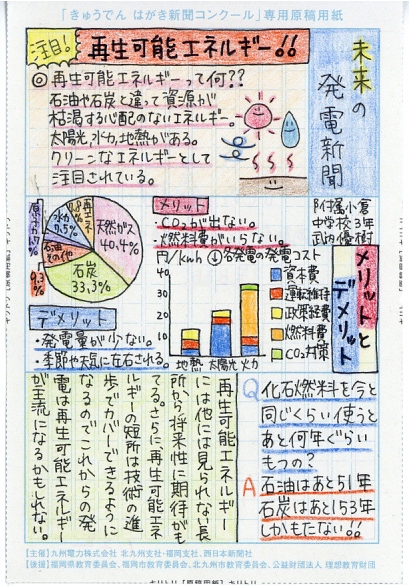 「きゅうでん はがき新聞コンクール」専用原稿用紙
注目!
再生可能エネルギー!!
未来の
発電新聞
附属小倉
中学校3年
武内優樹
◎再生可能エネルギーって何??
石油や石炭と違って資源が
枯渇する心配のないエネルギー。
太陽光,水力,地熱がある。
クリーンなエネルギーとして
注目されている。
天然ガス
40,4%
石炭
33,3%
石油
その他
9,3%
水力
7,5%
原子力
再エネ
メリット
・CO₂が出ない。
・燃料費がいらない。
メリットと
デメリット
円/kwh ↓各発電の発電コスト
40
30
20
10
0
地熱 太陽光 火力
資本費
運転維持
政策経費
燃料費
CO₂対策
デメリット
・発電量が少ない。
・季節や天気に左右される。
再生可能エネルギー
には他には見られない長
所から将来性に期待がも
てる。さらに再生可能エネ
ルギーの短所は技術の進
歩でカバーできるように
なるのでこれからの発
電は再生可能エネルギー
が主流になるかもしれない。
Q 化石燃料を今と
同じくらい使うと
あと何年ぐらい
もつの?
A 石油はあと51年
石炭はあと153年
しかもたない!!
[主催]九州電力株式会社 北九州支社・福岡支社、西日本新聞社
[後援]福岡県教育委員会、福岡市教育委員会、北九州市教育委員会、公益財団法人 理想教育財団